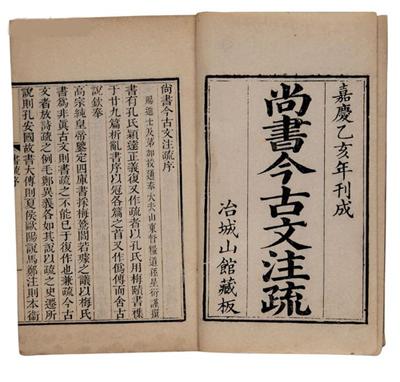 嘉慶乙亥年刊成
尚書今古文注疏
冶城山館藏板
尚書今古文注疏序
賜進士及第誥授通奉大夫山東督糧道孫星衍謹撰
書有孔氏穎達正義復又作疏者以孔氏用梅賾書雜
于廿九篇析亂書序以冠各篇之首又作僞傳而舍古
說欽奉
高宗純皇帝鑒定四庫書採梅鷟閻若璩之議以梅氏
書為非眞古文則書疏之不能已于復作也兼疏今古
文者放詩疏之例毛鄭異義各如其說以疏之史遷所
說則孔安國故書大傳則夏侯歐陽說馬鄭注則本衛
書疏序